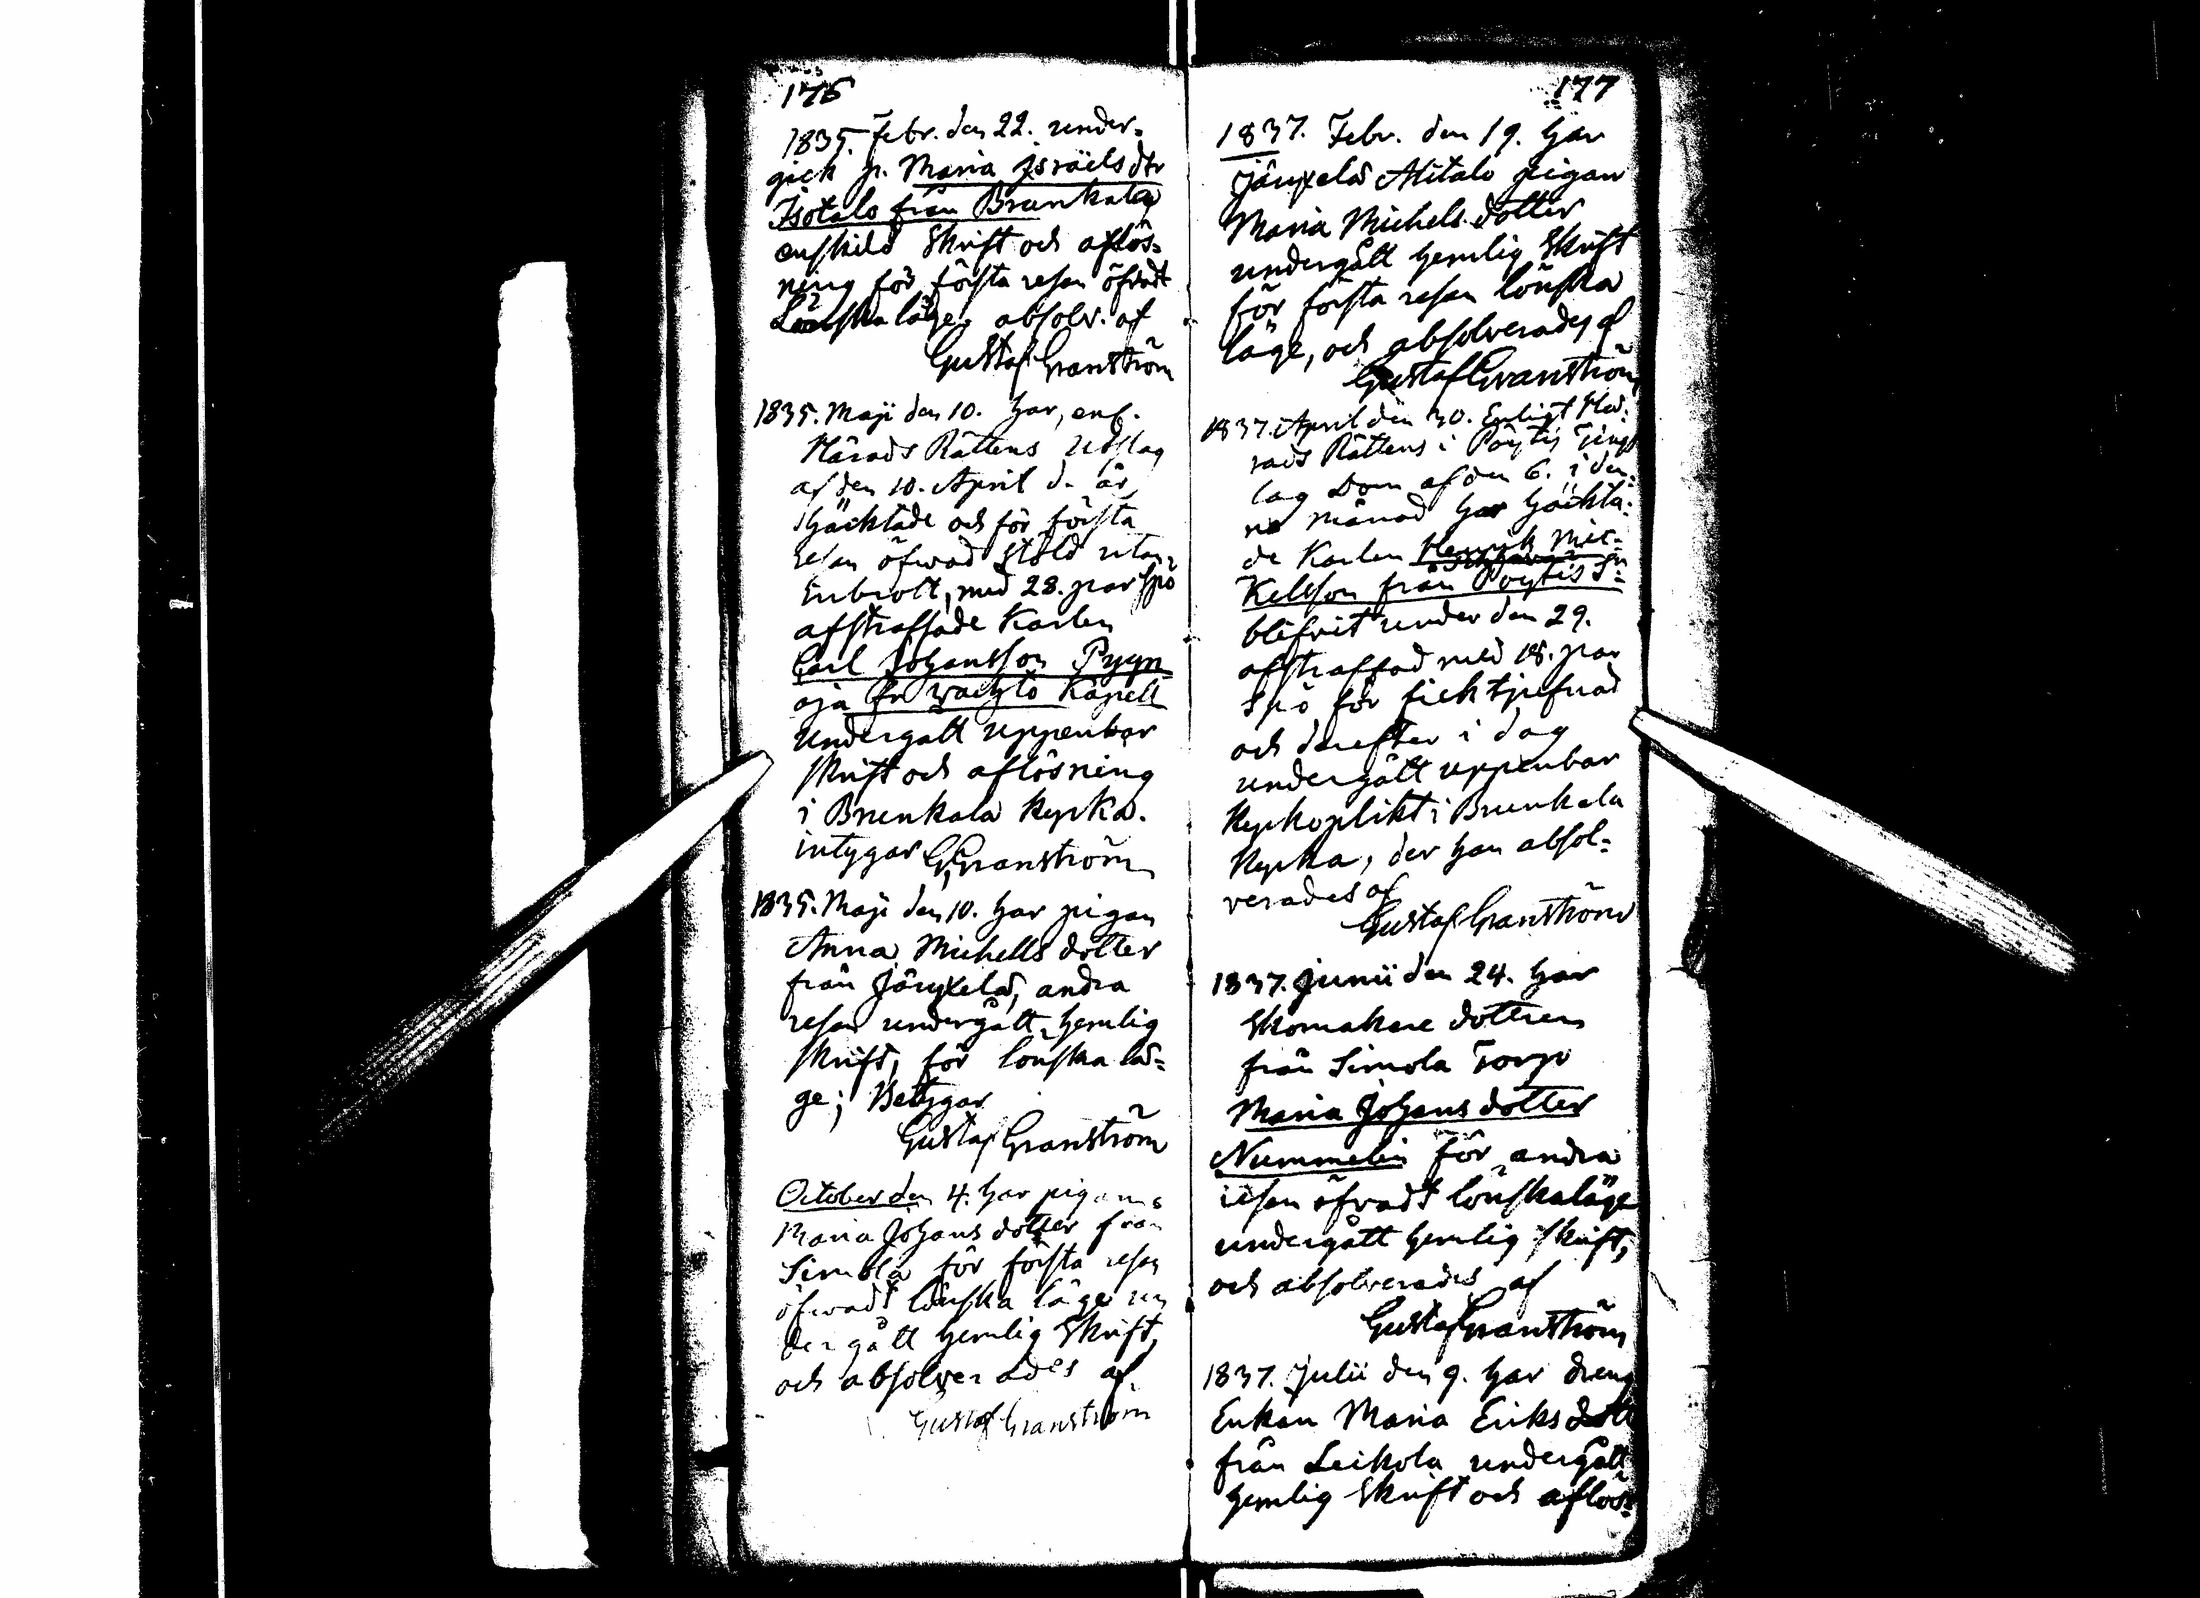 176
1835. Febr. den 22. under-
gick p. Maria Israëls dtr
Isotalo från Brunkala
enskild Skrift och aflös-
ning för första resan öfvadt
Lönskaläge, absolv. af
Gustaf Granström
1835. Maji den 10. har, enl.
Härads Rättens Utslag
af den 10. April d. år
häcktade och för första
resan öfwad stöld utan
Inbrott, med 28. par spö
afstraffade Karlen
Carl Johansson Pyyn
oja fr Kapell
undergått uppenbar
skrift och aflösning
i Brunkala Kyrka.
intygar G. Granström
1835. Maji den 10. har pigan
Anna Michells dotter
från Järykelä, andra
resan undergått hemlig
skrift, för lönska lä-
ge; Betygar
Gustaf Granström
October den 4. har pigan
Maria Johans dotter från
Simola för första resan
öfwadt lönska läge un
dergått hemlig Skrift,
och absolverades af
Gustaf Granström
177
1837. Febr. den 19. har
Järykelä Alitalo pigan
Maria Michels dotter
undergått hemlig Skrift
för första resan lönska
läge, och absolverades af
Gustaf Granström
1837. April den 30. Enligt Hä-
rads Rättens i Pöytis Tings
lag Dom af den 6. i den-
na månad har häckta-
de Karlen Henrik Mic-
kelsson från Pöytis Sn
blifvit under den 29.
afstraffad med 18. par
Spö för ficktjufnad
och derefter i dag
undergått uppenbar
Kyrkoplikt i Brunkala
Kyrka, der han absol-
verades af
Gustaf Granström
1837. Junii den 24. har
Skomakare dottren
från Simola Torp
Maria Johans dotter
Nummelin för andra
resan öfvadt lönskaläge
undergått hemlig skrift,
och absolverades af
Gustaf Granström
1837. Julii den 9. har dreng
Enkan Maria Eriks dott
från Leikola undergått
hemlig Skrift och aflös-